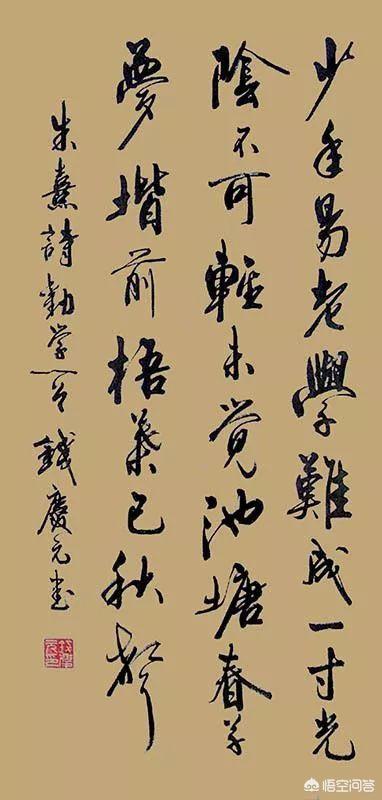 少年易老學難成一寸光
陰不可輕未觉池塘春草
夢堦前梧葉已秋聲
朱熹詩勸学一首 錢慶元书
悟空问答